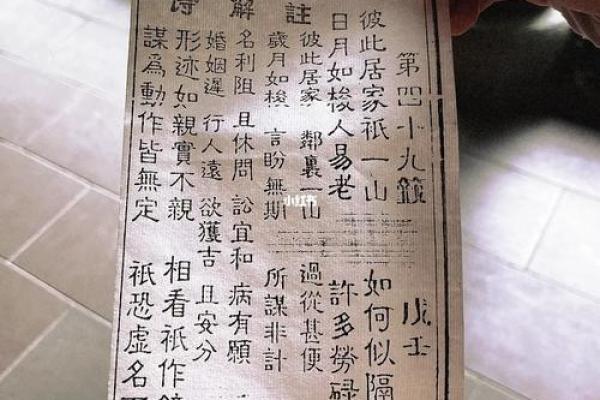 第四十九籤 戊壬
彼此居家祇一山 如何似隔
日月如梭人易老 許多勞碌
註
彼此居家 鄰裏一山 過從甚便
歲月如梭 言盼無期 所謀非計
解
名利阻 且休問 訟宜和 病有願
婚姻遲 行人遠 欲獲吉 且安分
詩
形迹如親實不親 相看祇作
謀爲動作皆無定 祇恐虛名
小红书